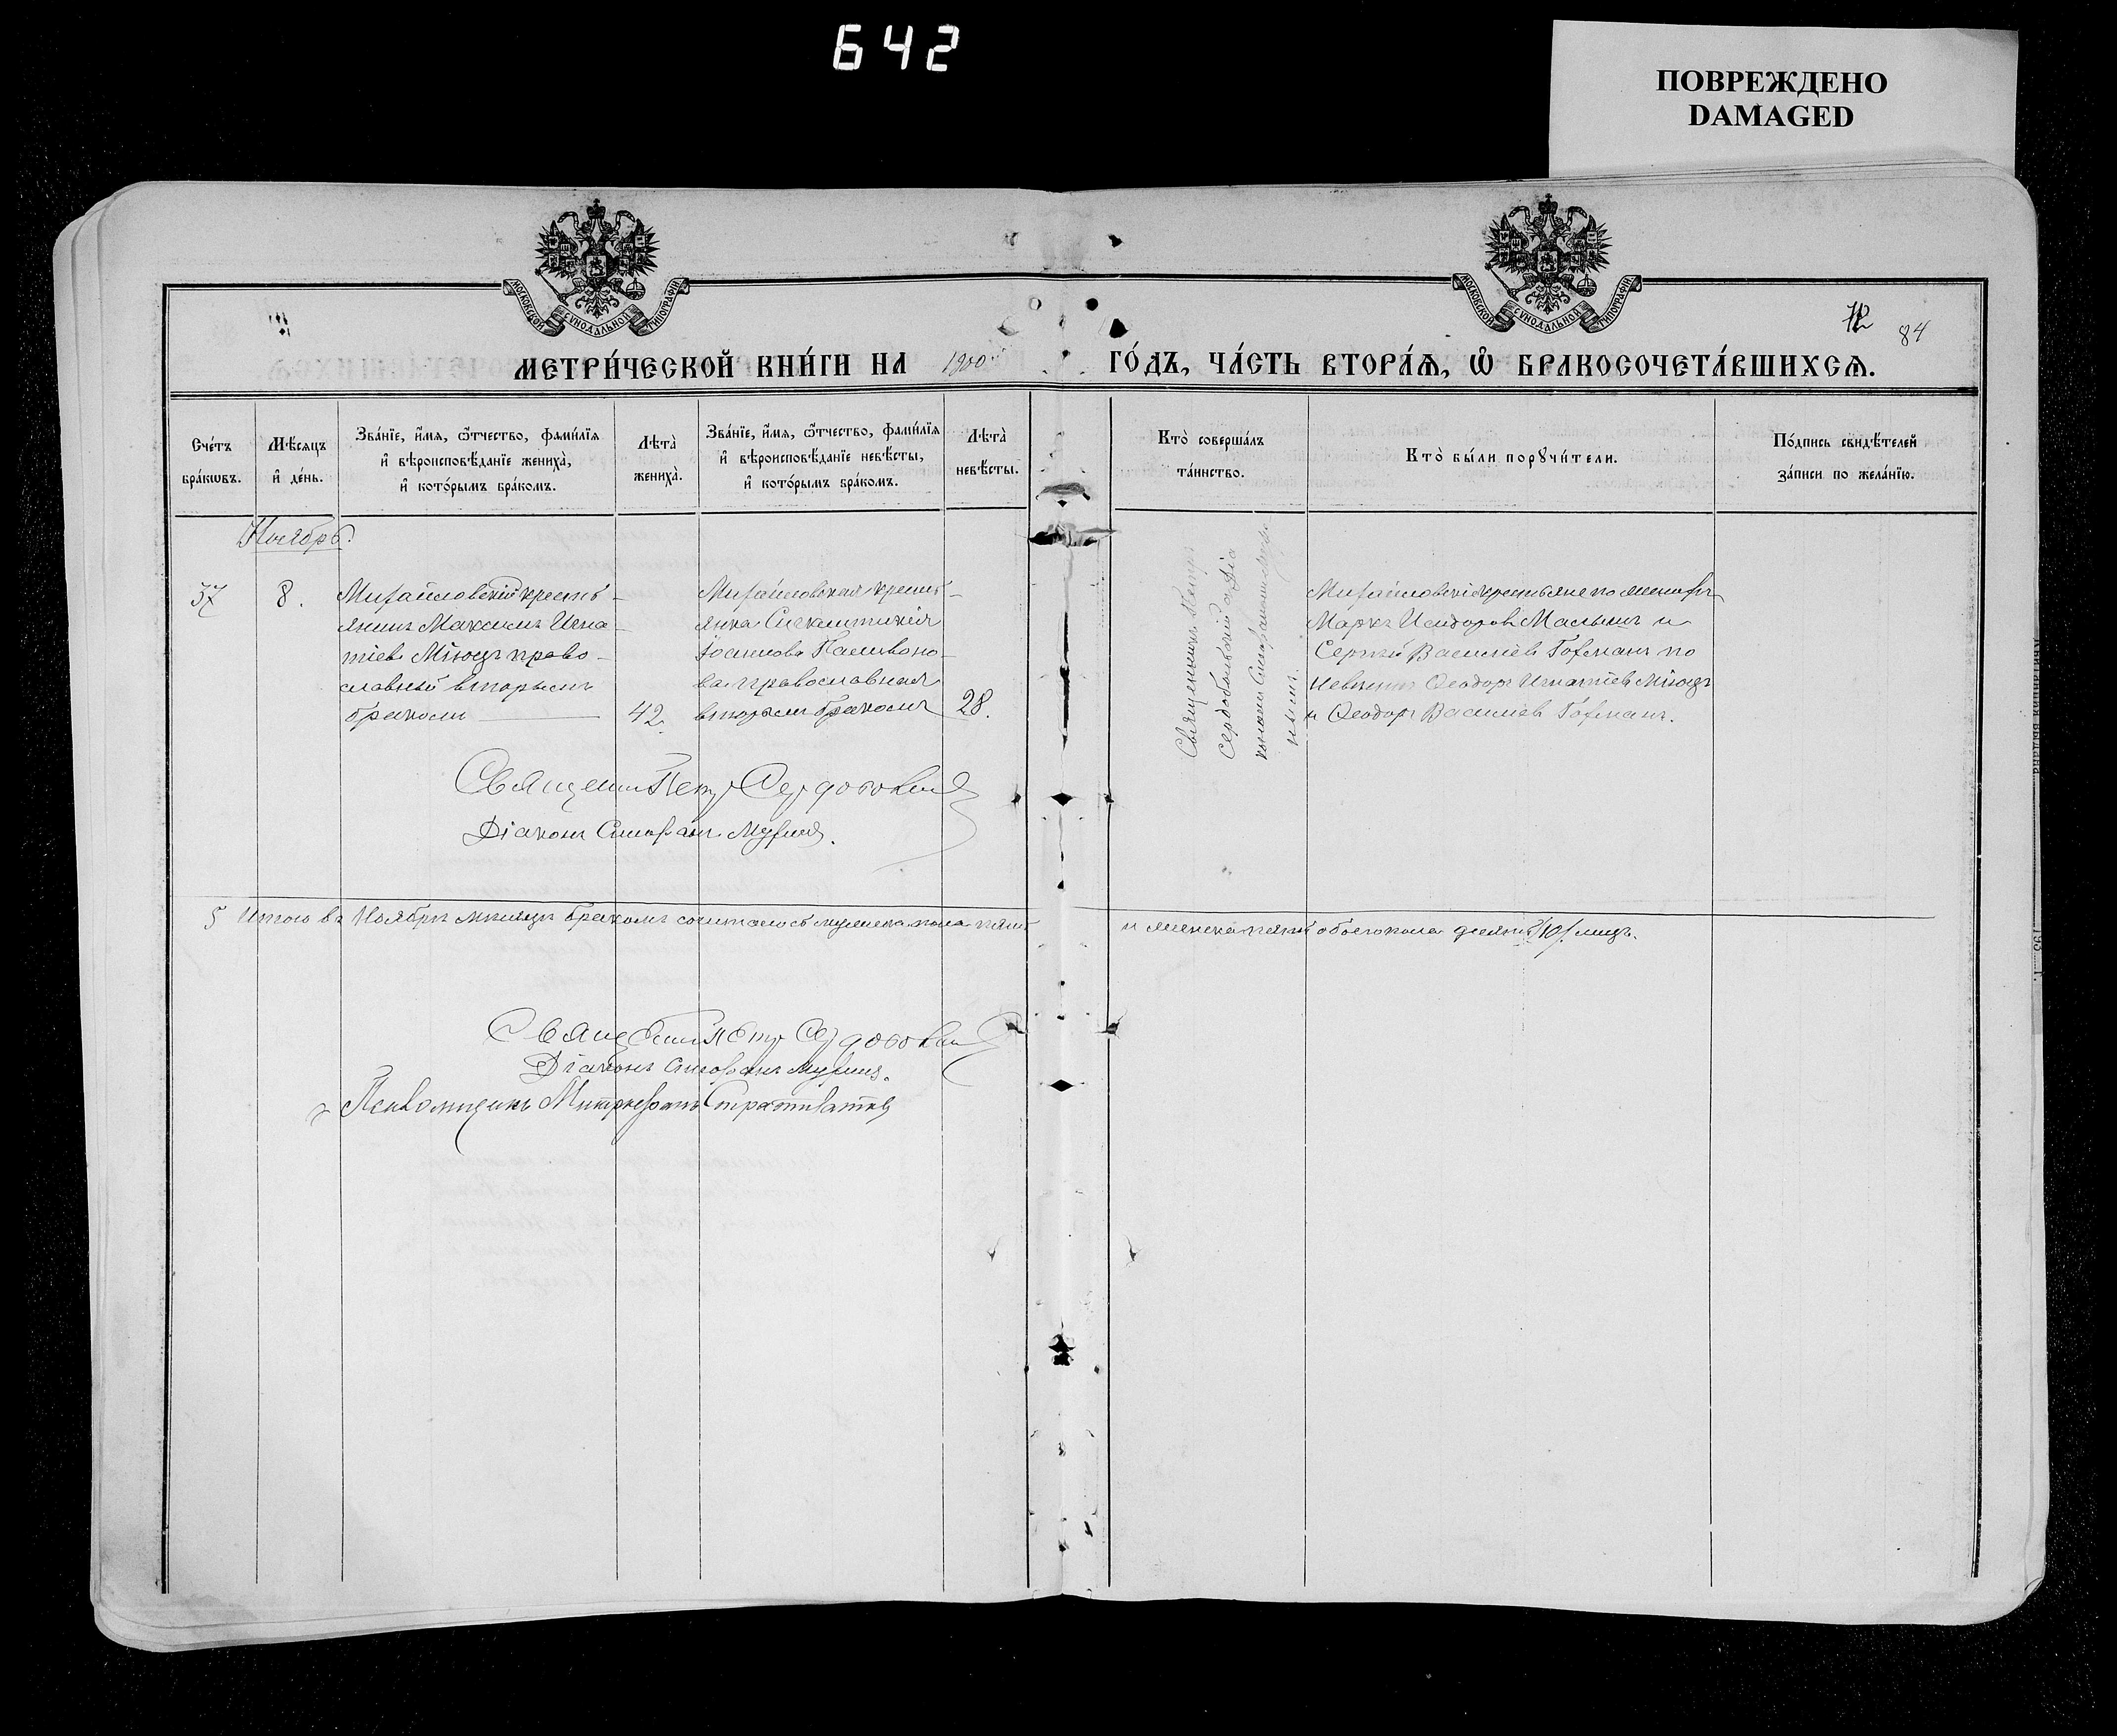 642
ПОВРЕЖДЕНО
DAMAGED
МОСКОВСКОЙ СѴНОДАЛЬНОЙ ТИПОГРАФІИ
МОСКОВСКОЙ СѴНОДАЛЬНОЙ ТИПОГРАФІИ
84
МЕТРИ́ЧЕСКОЙ КНИ́ГИ НА 1900 ГО́ДЪ, ЧА́СТЬ ВТОРА́Ѧ, Ѽ БРАКОСОЧЕТА́ВШИХСѦ.
Сче́тъ бра́кѡвъ.
Мѣ́сѧцъ и҆ де́нь.
Зва́нїе, и҆́мѧ, ѻ҆́тчество, фами́лїѧ и҆ вѣроисповѣ́данїе жениха̀, и҆ кото́рымъ бра́комъ.
Лѣта̀ жениха̀.
Зва́нїе, и҆́мѧ, ѻ҆́тчество, фами́лїѧ и҆ вѣроисповѣ́данїе невѣ́сты, и҆ кото́рымъ бра́комъ.
Лѣта̀ невѣ́сты.
Кто̀ соверша́лъ та́инство.
Кто̀ бы́ли порꙋчи́тели.
По́дпись свидѣ́телей за́писи по жела́нїю.
Ноябрь.
37
8.
Михайловскій кресть-
янинъ Максимъ Игна-
тіевъ Міюцъ право-
славный вторымъ
бракомъ
42.
Михайловская кресть-
янка
Іоаннова
православная
вторымъ бракомъ
28.
Священникъ Петръ
Сердобольскій съ Діа
кономъ Симфаномъ
Михайловскіе крестьяне по женихѣ
Маркъ Исидоровъ Малышъ и
Сергѣй Василіевъ Гофманъ по
невѣстѣ Ѳеодоръ Игнатіевъ Міюцъ
и Ѳеодоръ Василіевъ Гофманъ.
Священникъ Петръ
Діаконъ
5 Итого въ Ноябрѣ мѣсяцѣ бракомъ сочеталось мужска пола пять и женска пять обоего пола десять /10/ лицъ.
Священникъ Петръ
Діаконъ
Псаломщикъ Митрофанъ